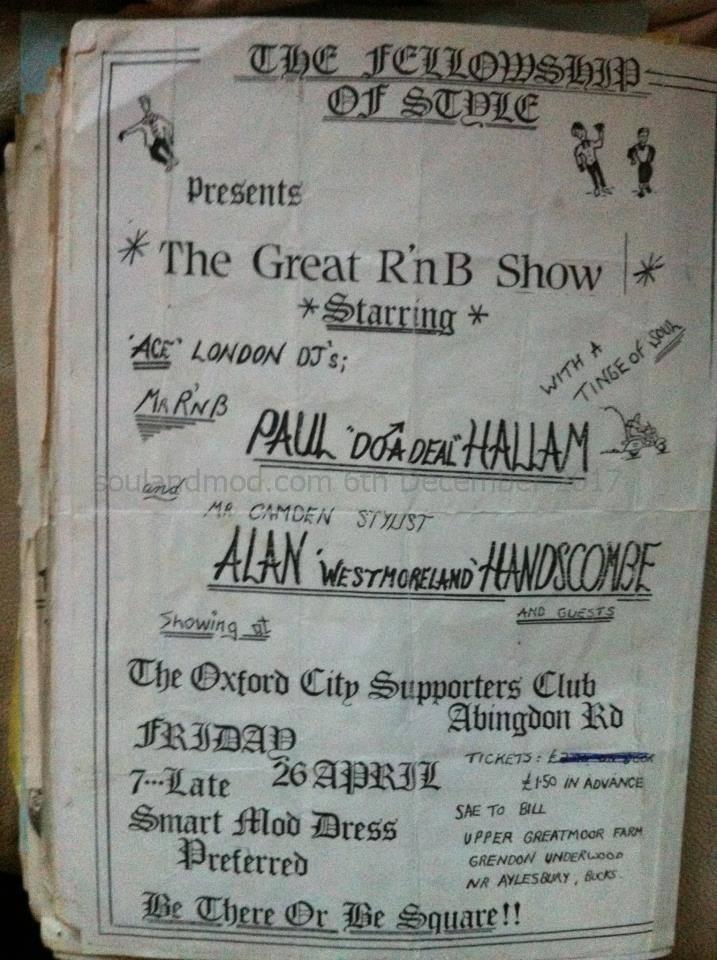 THE FELLOWSHIP
OF STYLE
Presents
* The Great R'nB Show *
* Starring *
'ACE' LONDON DJ's;
WITH A
TINGE OF SOUL
MR R'NB
PAUL "DO A DEAL" HALLAM
soulandmod.com 6th December 2017
and
MR CAMDEN STYLIST
ALAN 'WESTMORELAND' HANDSCOMBE
AND GUESTS
Showing at
The Oxford City Supporters Club
Abingdon Rd
FRIDAY
26 APRIL
7---Late
TICKETS: £
£1·50 IN ADVANCE
Smart Mod Dress
Preferred
SAE TO BILL
UPPER GREATMOOR FARM
GRENDON UNDERWOOD
NR AYLESBURY, BUCKS.
Be There Or Be Square!!